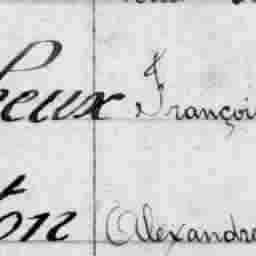 eux Françoi
ton Alexandre